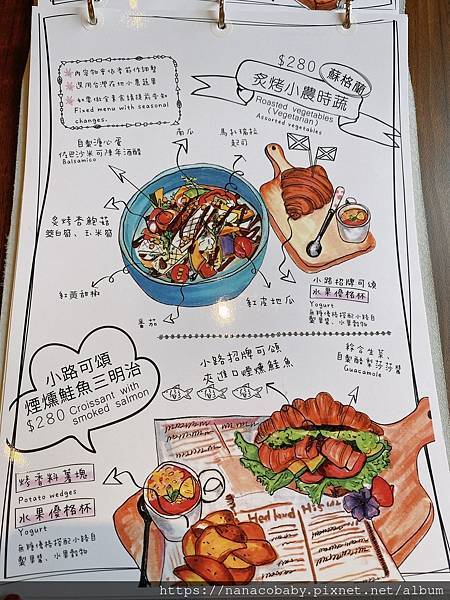 $280
蘇格蘭
炙烤小農時蔬
Roasted vegetables
(Vegetarian)
Assorted vegetables
內容物會依季節作調整
選用台灣在地小農蔬果
如需做全素食請提前告知
Fixed menu with seasonal
changes.
自製溏心蛋
佐巴沙米可陳年酒醋
Balsamico
南瓜
馬扎瑞拉
起司
炙烤杏鮑菇
筊白筍、玉米筍
紅黃甜椒
番茄
紅皮地瓜
小路招牌可頌
水果優格杯
Yogurt
無糖優格搭配小路自
製果醬、水果穀物
小路可頌
煙燻鮭魚三明治
$280 Croissant with
smoked salmon
小路招牌可頌
夾進口煙燻鮭魚
綜合生菜、
自製酪梨莎莎醬
Guacamole
烤香料薯塊
Potato wedges
水果優格杯
Yogurt
無糖優格搭配小路自
製果醬、水果穀物
https://nanacobaby.pixnet.net/album